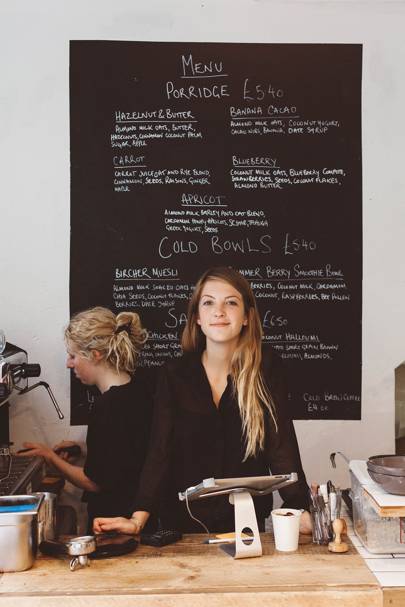 MENU
PORRIDGE £5.40
HAZELNUT & BUTTER
ALMOND MILK OATS, BUTTER,
HAZELNUTS, CINNAMON COCONUT PALM
SUGAR, APPLE
BANANA CACAO
ALMOND MILK OATS, COCONUT YOGURT,
CACAO NIBS, BANANA, DATE SYRUP
CARROT
CARROT JUICE OAT AND RYE BLEND,
CINNAMON, SEEDS, RAISINS, GINGER
BLUEBERRY
COCONUT MILK OATS, BLUEBERRY COMPOTE,
STRAWBERRIES, SEEDS, COCONUT FLAKES,
ALMOND BUTTER
APRICOT
ALMOND MILK BARLEY AND OAT BLEND,
CARDAMOM HONEY APRICOTS,
GREEK YOGURT, SEEDS
COLD BOWLS £5.40
BIRCHER MUESLI
ALMOND MILK SOAKED OATS
CHIA SEEDS, COCONUT FLAKES,
BERRIES, DATE SYRUP
MMER BERRY SMOOTHIE BOWL
BERRIES, COCONUT MILK, CARDAMOM,
COCONUT, RASPBERRIES, BEE POLLEN
SA £6.50
CHICKEN
COCONUT HALLOUMI
SHORT GRAIN BROWN
ALMONDS,
PEANUT
COLD BREW COFFEE